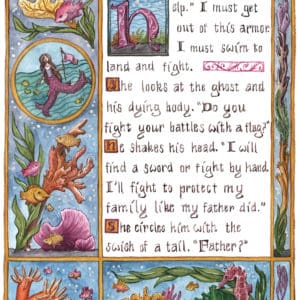 help." I must get
out of this armor.
I must swim to
land and fight.
She looks at the ghost and
his dying body. "Do you
fight your battles with a flag?"
He shakes his head. "I will
find a sword or fight by hand.
I'll fight to protect my
family like my father did."
She circles him with the
swish of a tail. "Father?"